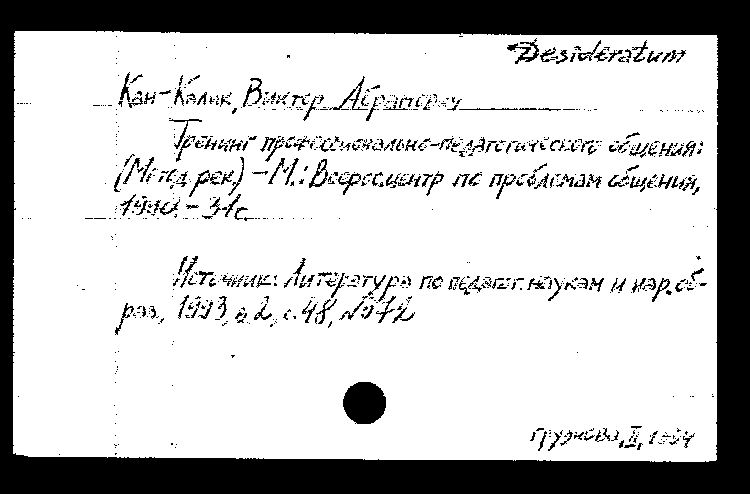 Desideratum
Кан-Калик, Виктор Абрамович
Тренинг профессионально-педагогического общения:
(Метод. рек.) - М.: Всеросцентр по проблемам общения,
1990. - 31с.
Источник: Литература по педагог. наукам и нар. об-
раз., 1993, в.2, с.48, №372
II, 1994